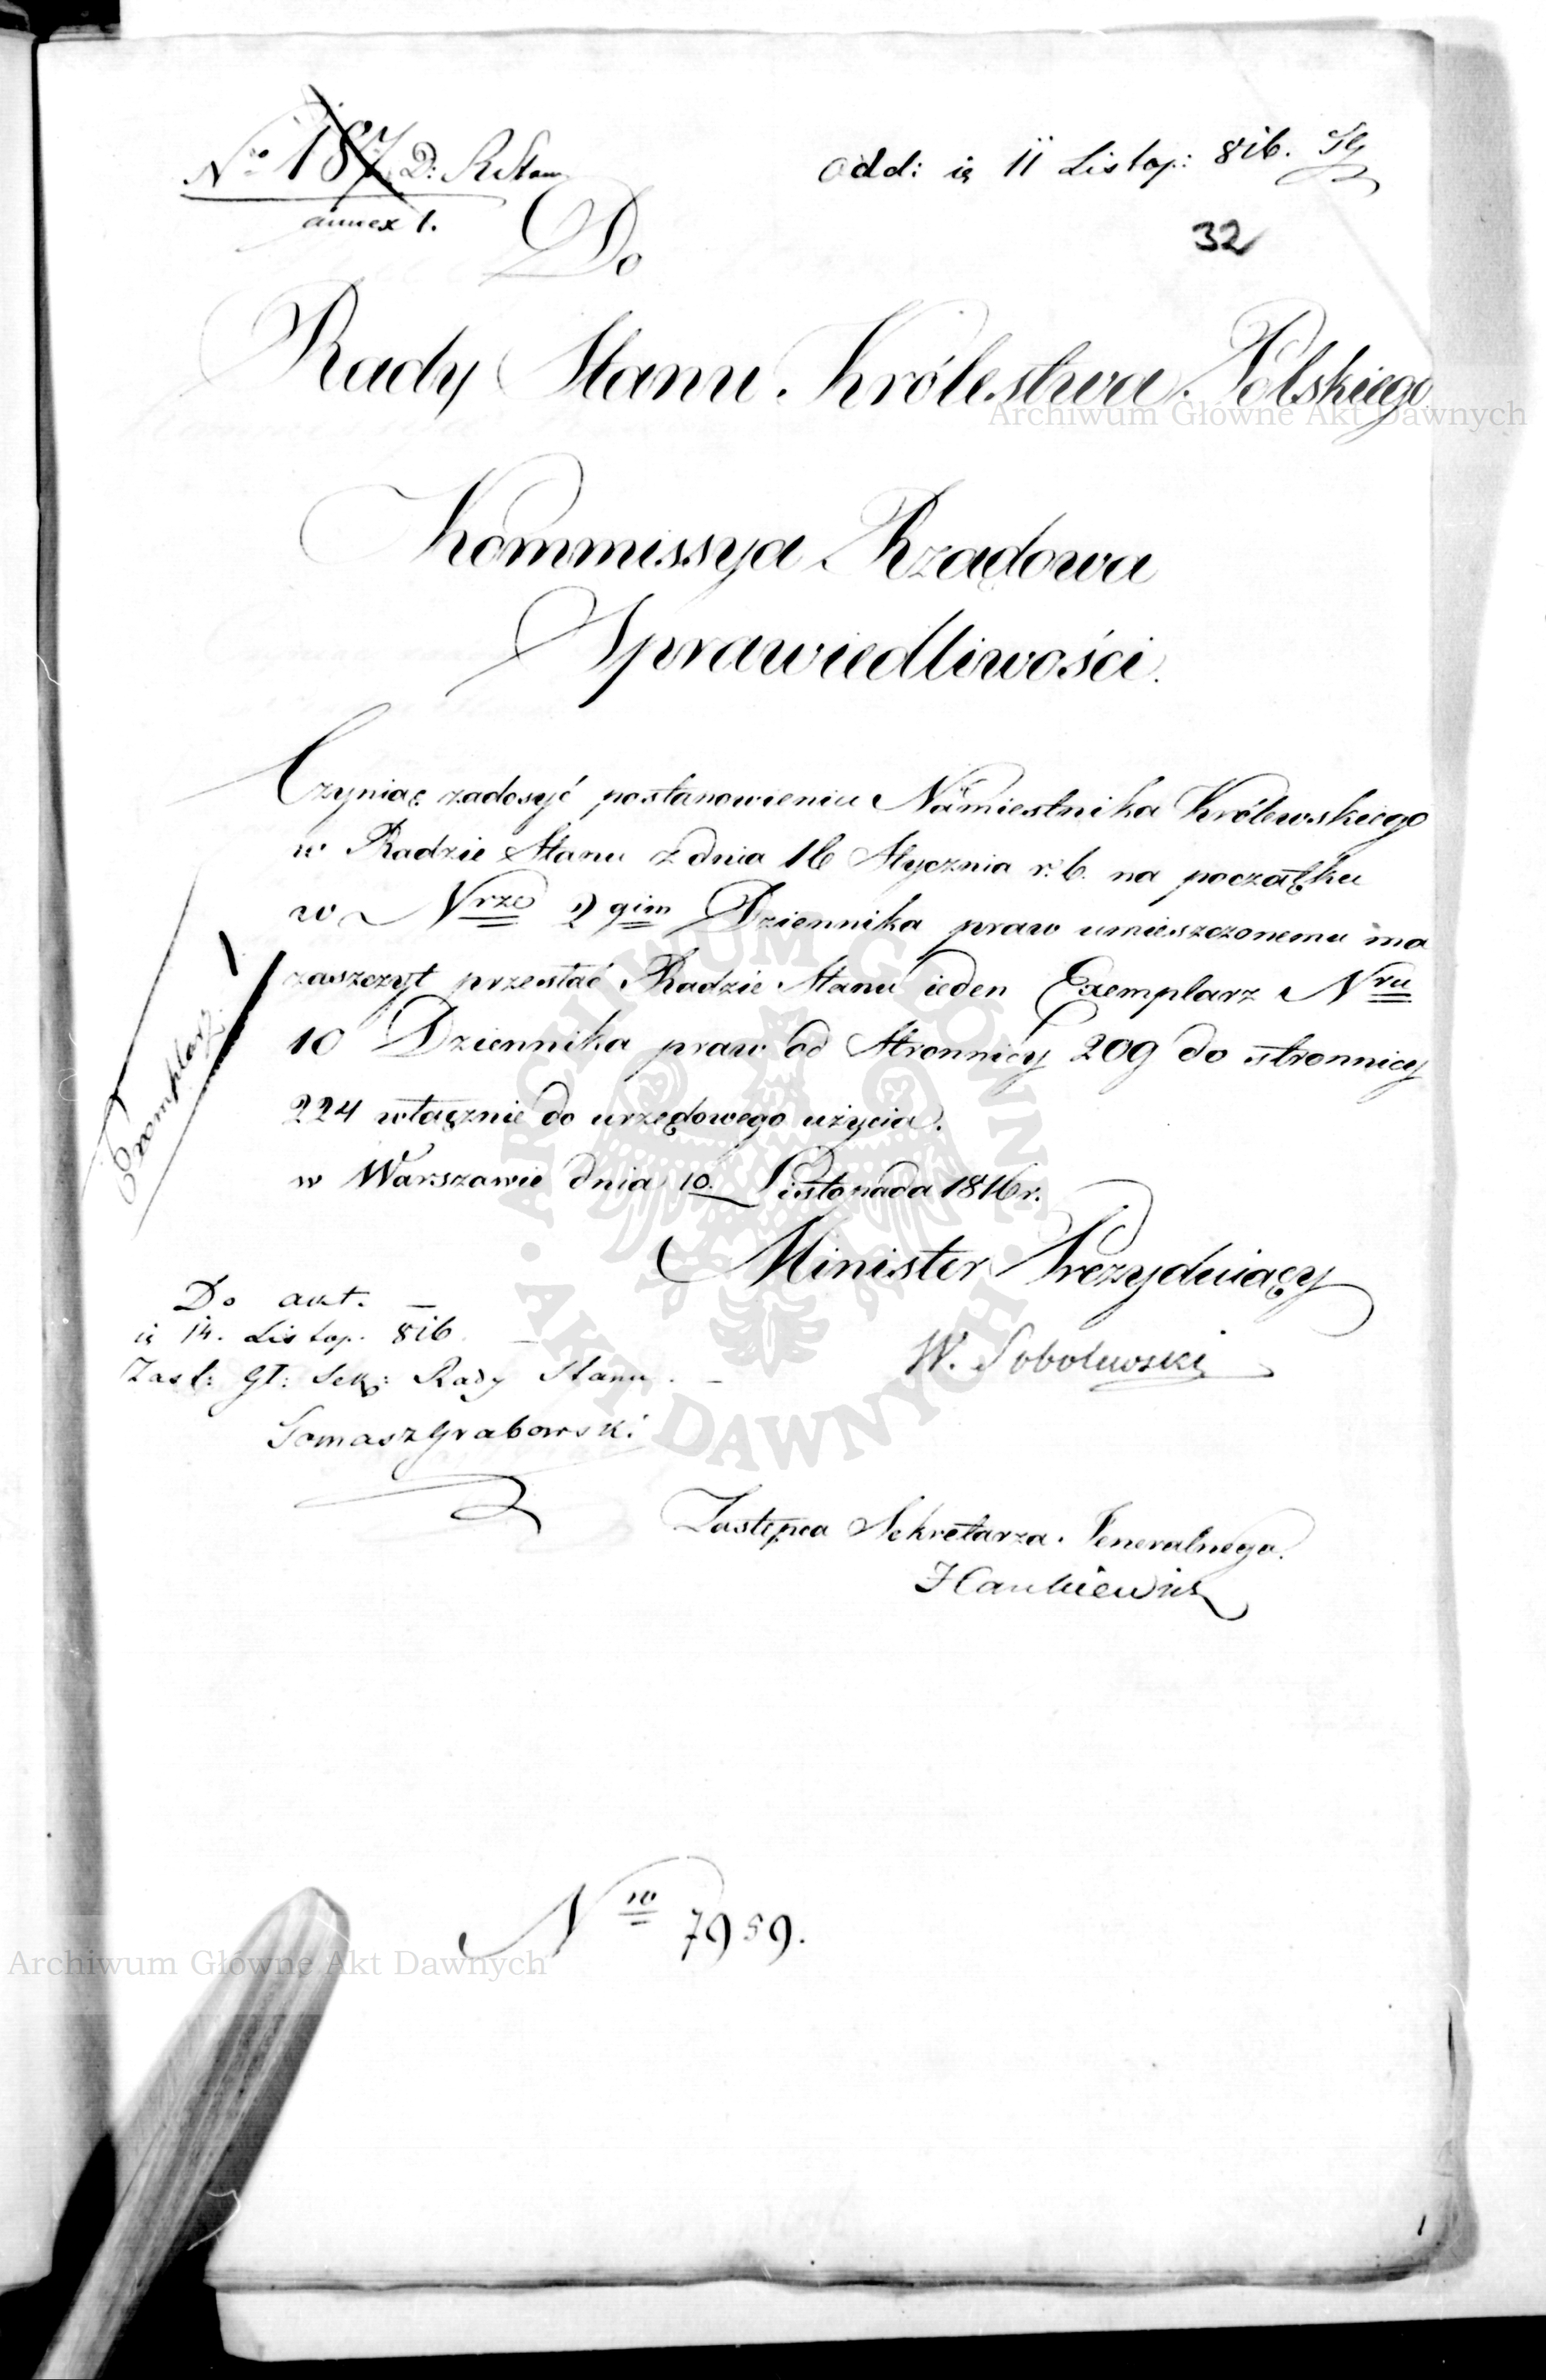 Nro 187 D: R Stanu
annex 1.
Odd: is 11 Listop: 816.
32
Do
Rady Stanu Królestwa Polskiego
Archiwum Główne Akt Dawnych
Kommissya Rządowa
Sprawiedliwości.
Czyniąc zadosyć postanowieniu Namiestnika Królewskiego
w Radzie Stanu z dnia 16 Stycznia r. b. na początku
w Nrze 2gim Dziennika praw umieszczonemu ma
zaszczyt przesłać Radzie Stanu ieden Exemplarz Nru
10 Dziennika praw od Stronnicy 209 do stronnicy
224 włącznie do urzędowego użycia.
w Warszawie dnia 10. Listopada 1816 r.
Exemplarz
Minister Prezyduiący
W. Sobolewski
Do akt. –
is 14. Listop. 816 –
Zast: Gł: Sek: Rady Stanu. –
Tomasz Grabowski
Zastępca Sekretarza Jeneralnego.
Hankiewicz
Nro 7959.
Archiwum Główne Akt Dawnych
ARCHIWUM GŁÓWNE AKT DAWNYCH